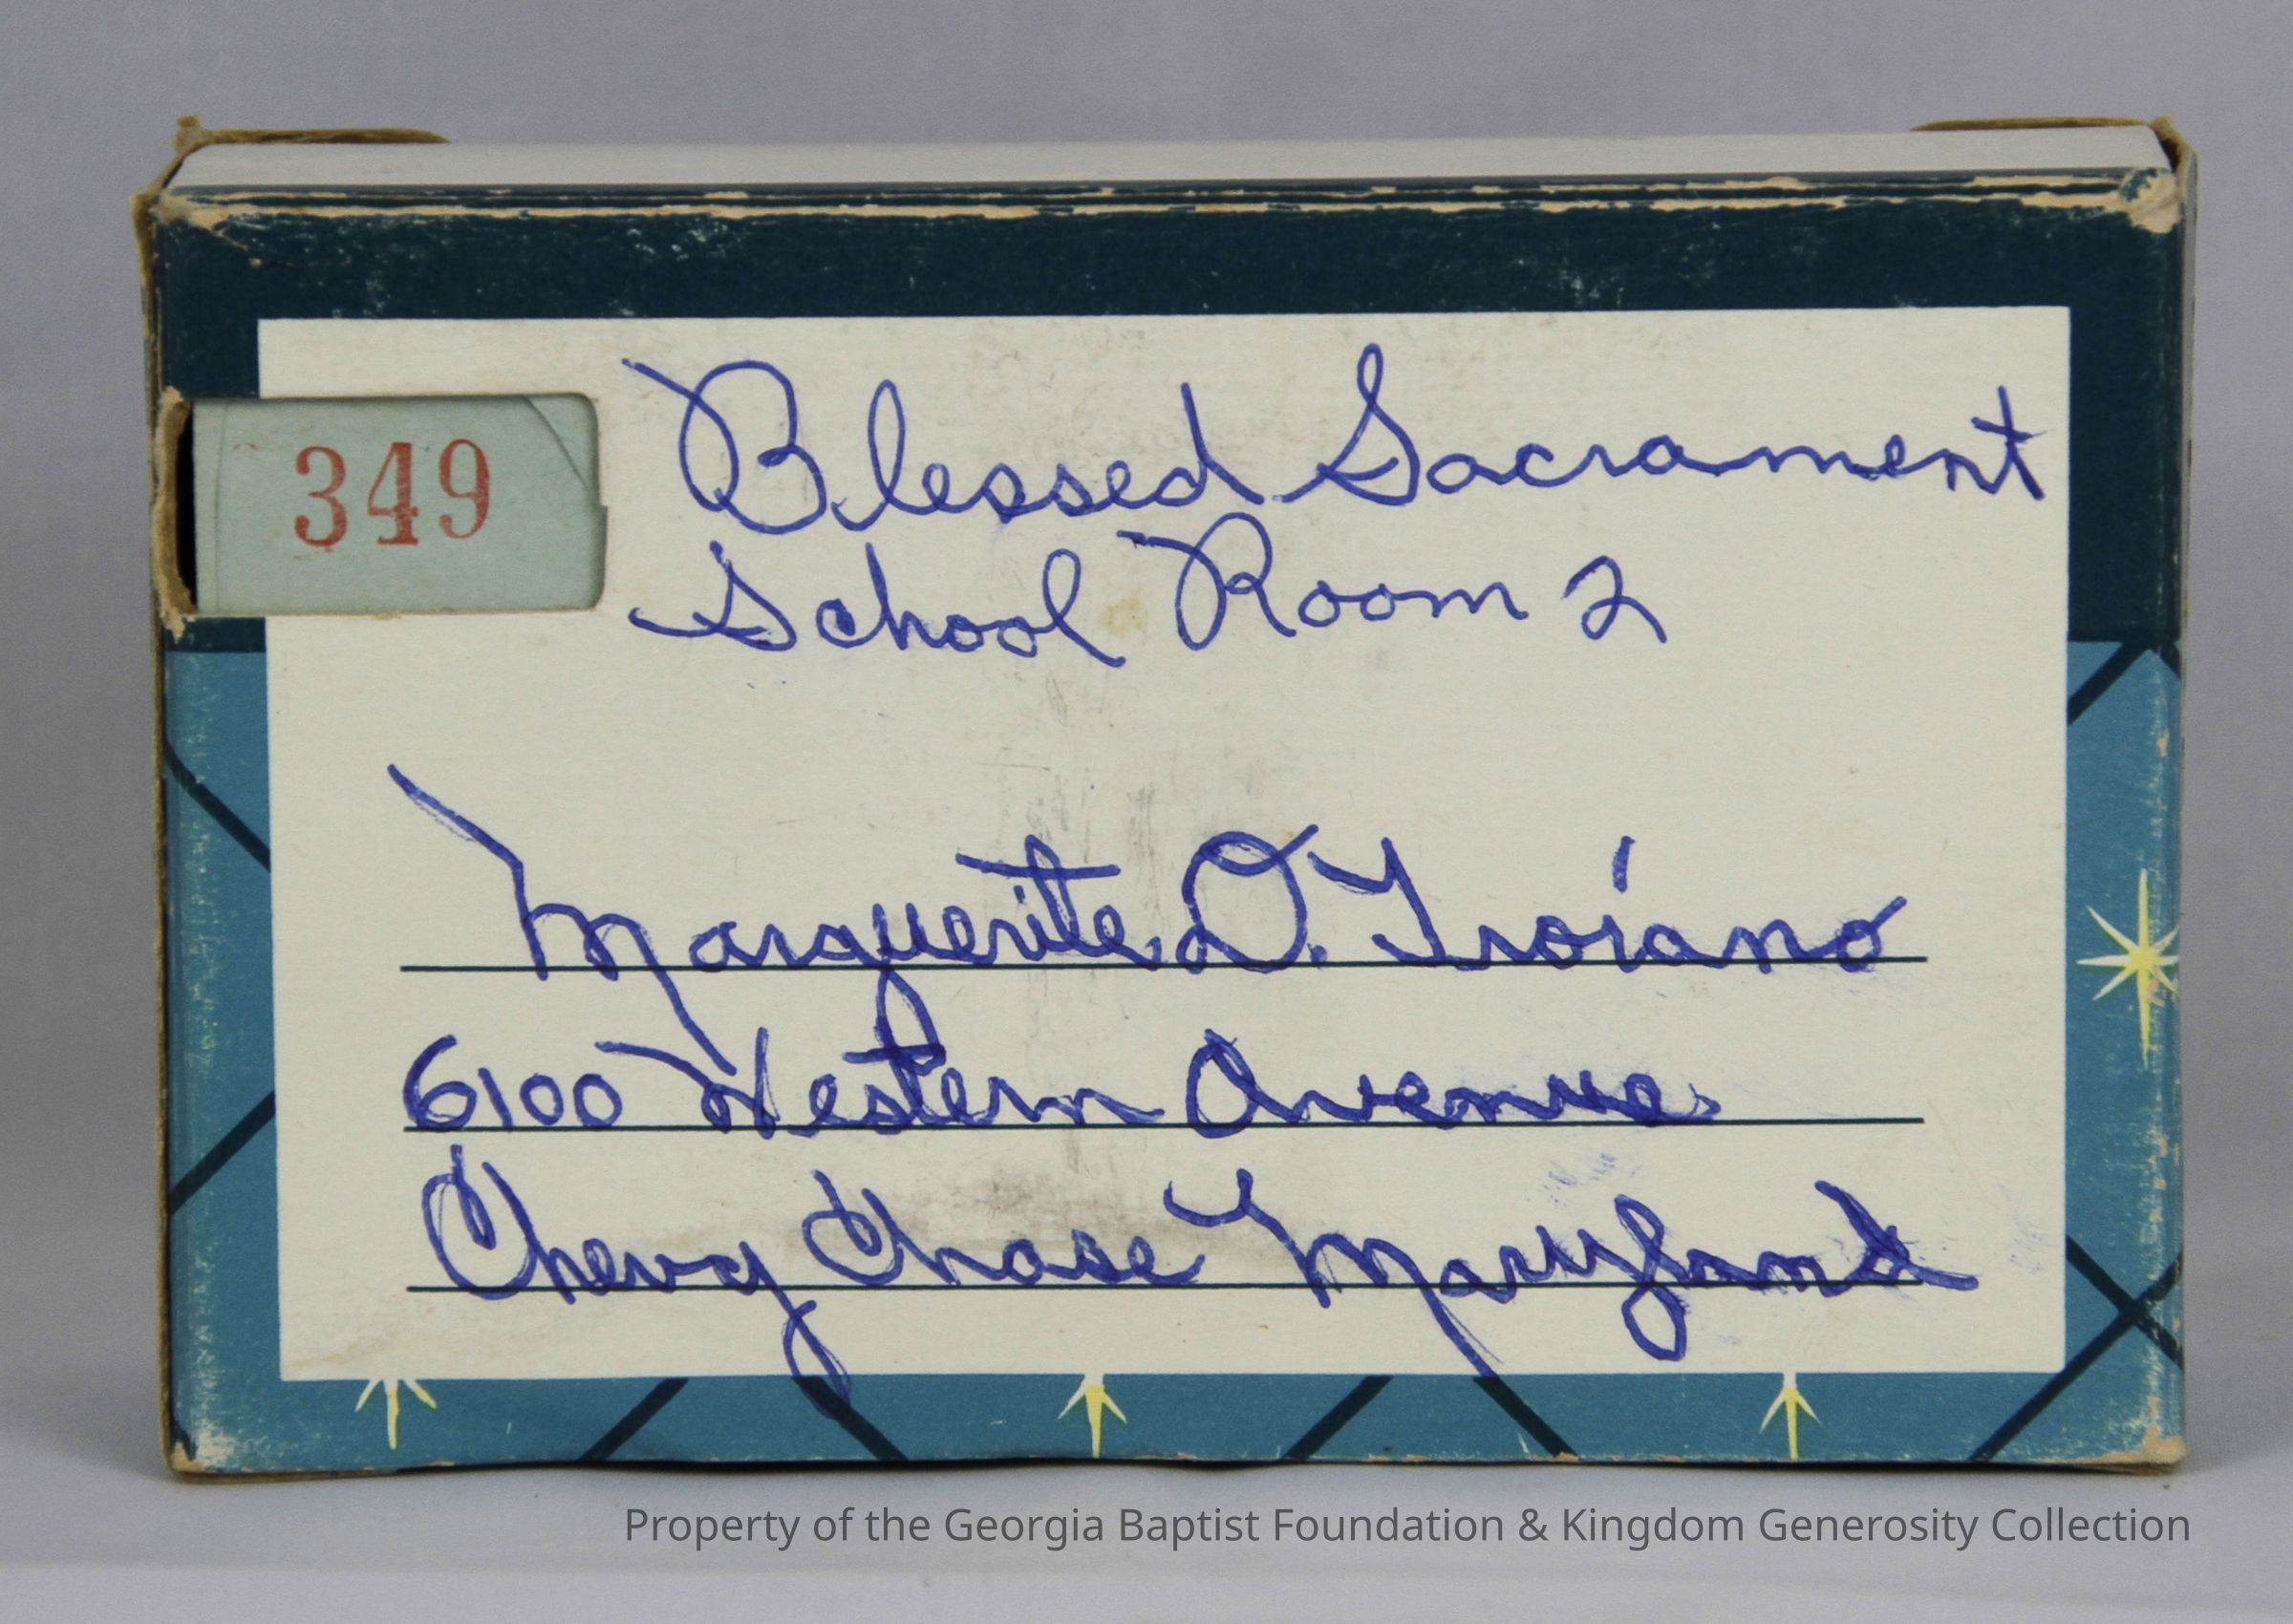 349
Blessed Sacrament
School Room 2
Marguerite D. Troiano
6100 Western Avenue
Chevy Chase Maryland
Property of the Georgia Baptist Foundation & Kingdom Generosity Collection